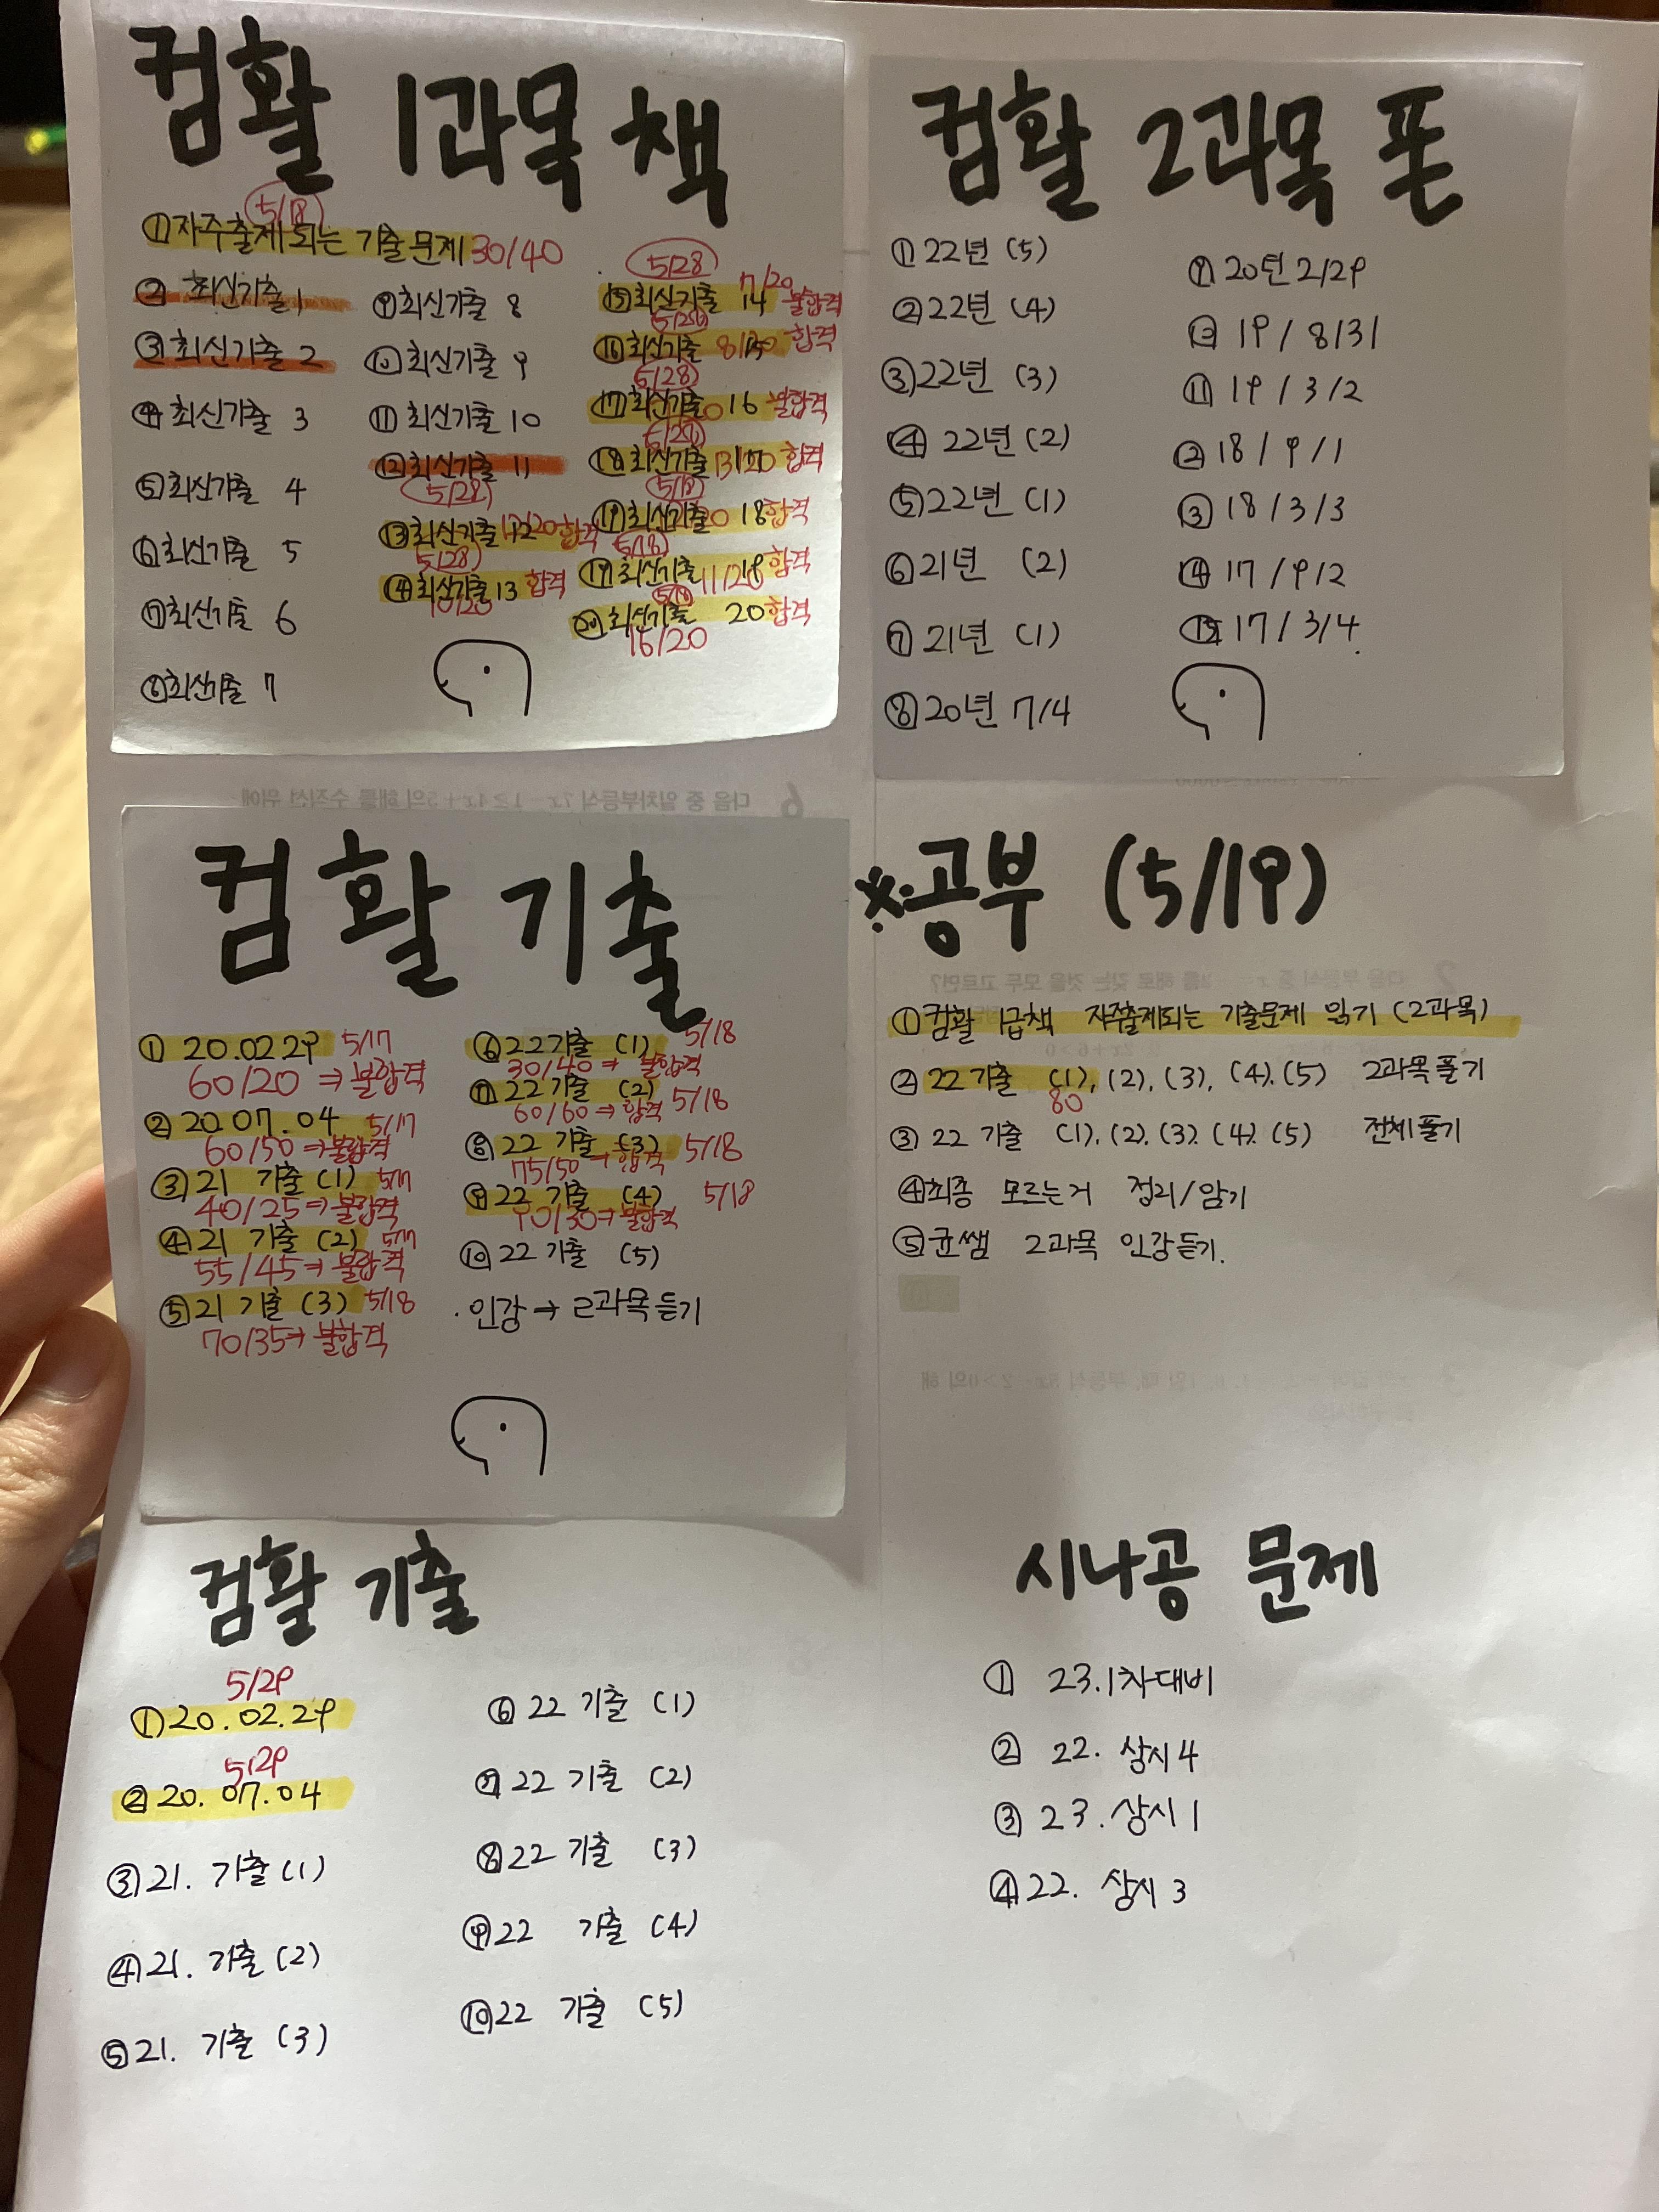 컴활 1과목 책
5/18
① 자주출제되는 기출문제 30/40
② 최신기출 1
③ 최신기출 2
④ 최신기출 3
⑤ 최신기출 4
⑥ 최신기출 5
⑦ 최신기출 6
⑧ 최신기출 7
⑨ 최신기출 8
⑩ 최신기출 9
⑪ 최신기출 10
⑫ 최신기출 11
5/28
⑬ 최신기출 12 합격
5/28
⑭ 최신기출 13 합격
10/20
5/28
7/20
⑮ 최신기출 14 불합격
⑯ 최신기출 합격
5/28
⑰ 최신기출 16 불합격
⑱ 최신기출 17 13/20 합격
5/18
⑲ 최신기출 18 합격
5/18
⑲ 최신기출 19 11/20 합격
⑳ 최신기출 20 합격
16/20
컴활 2과목 폰
① 22년 (5)
② 22년 (4)
③ 22년 (3)
④ 22년 (2)
⑤ 22년 (1)
⑥ 21년 (2)
⑦ 21년 (1)
⑧ 20년 7/4
⑨ 20년 2/29
⑩ 19 / 8/31
⑪ 19 / 3 / 2
⑫ 18 / 9 / 1
⑬ 18 / 3 / 3
⑭ 17 / 9 / 2
⑮ 17 / 3 / 4
컴활 기출
① 20.02.29 5/17
60/20 ⇒ 불합격
② 20.07.04 5/17
60/50 ⇒ 불합격
③ 21 기출 (1) 5/17
40/25 ⇒ 불합격
④ 21 기출 (2) 5/17
55/45 ⇒ 불합격
⑤ 21 기출 (3) 5/18
70/35 ⇒ 불합격
⑥ 22 기출 (1) 5/18
30/40 ⇒ 불합격
⑦ 22 기출 (2)
60/60 ⇒ 합격 5/18
⑧ 22 기출 (3) 5/18
75/50 ⇒ 합격
⑨ 22 기출 (4) 5/18
⇒ 불합격
⑩ 22 기출 (5)
· 인강 → 2과목 듣기
※ 공부 (5/19)
① 컴활 1급책 자주출제되는 기출문제 읽기 (2과목)
② 22 기출 (1), (2), (3), (4). (5) 2과목 풀기
80
③ 22 기출 (1). (2). (3). (4). (5) 전체 풀기
④ 최종 모르는거 정리/암기
⑤ 균쌤 2과목 인강듣기.
컴활 기출
5/29
① 20.02.29
5/29
② 20.07.04
③ 21. 기출 (1)
④ 21. 기출 (2)
⑤ 21. 기출 (3)
⑥ 22 기출 (1)
⑦ 22 기출 (2)
⑧ 22 기출 (3)
⑨ 22 기출 (4)
⑩ 22 기출 (5)
시나공 문제
① 23.1차대비
② 22. 상시 4
③ 23. 상시 1
④ 22. 상시 3